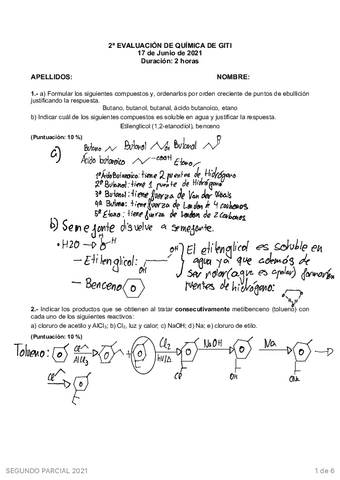 2ª EVALUACIÓN DE QUÍMICA DE GITI
17 de Junio de 2021
Duración: 2 horas
APELLIDOS: NOMBRE:
1.- a) Formular los siguientes compuestos y, ordenarlos por orden creciente de puntos de ebullición justificando la respuesta.
Butano, butanol, butanal, ácido butanoico, etano
b) Indicar cuál de los siguientes compuestos es soluble en agua y justificar la respuesta.
Etilenglicol (1,2-etanodiol), benceno
(Puntuación: 10 %)
a) Butano Butanol OH Butanal
Ácido butanoico COOH Etano
1º Ácido Butanoico: tiene 2 puentes de Hidrógeno
2º Butanol: tiene 1 puente de Hidrógeno
3º Butanal: tiene fuerza de Van der Waals
4º Butano: tiene fuerza de London 4 carbonos
5º Etano: tiene fuerza de London de 2 carbonos
b) Semejante disuelve a semejante.
• H2O → O H H
- Etilenglicol: OH OH
- Benceno
El etilenglicol es soluble en
agua ya que además de
ser polar (agua es polar) forman
puentes de hidrógeno:
2.- Indicar los productos que se obtienen al tratar consecutivamente metilbenceno (tolueno) con cada uno de los siguientes reactivos:
a) cloruro de acetilo y AlCl3; b) Cl2, luz y calor; c) NaOH; d) Na; e) cloruro de etilo.
(Puntuación: 10 %)
Tolueno: AlCl3 + Cl2 NaOH Na
Cl OH ONa
SEGUNDO PARCIAL 2021 1 de 6